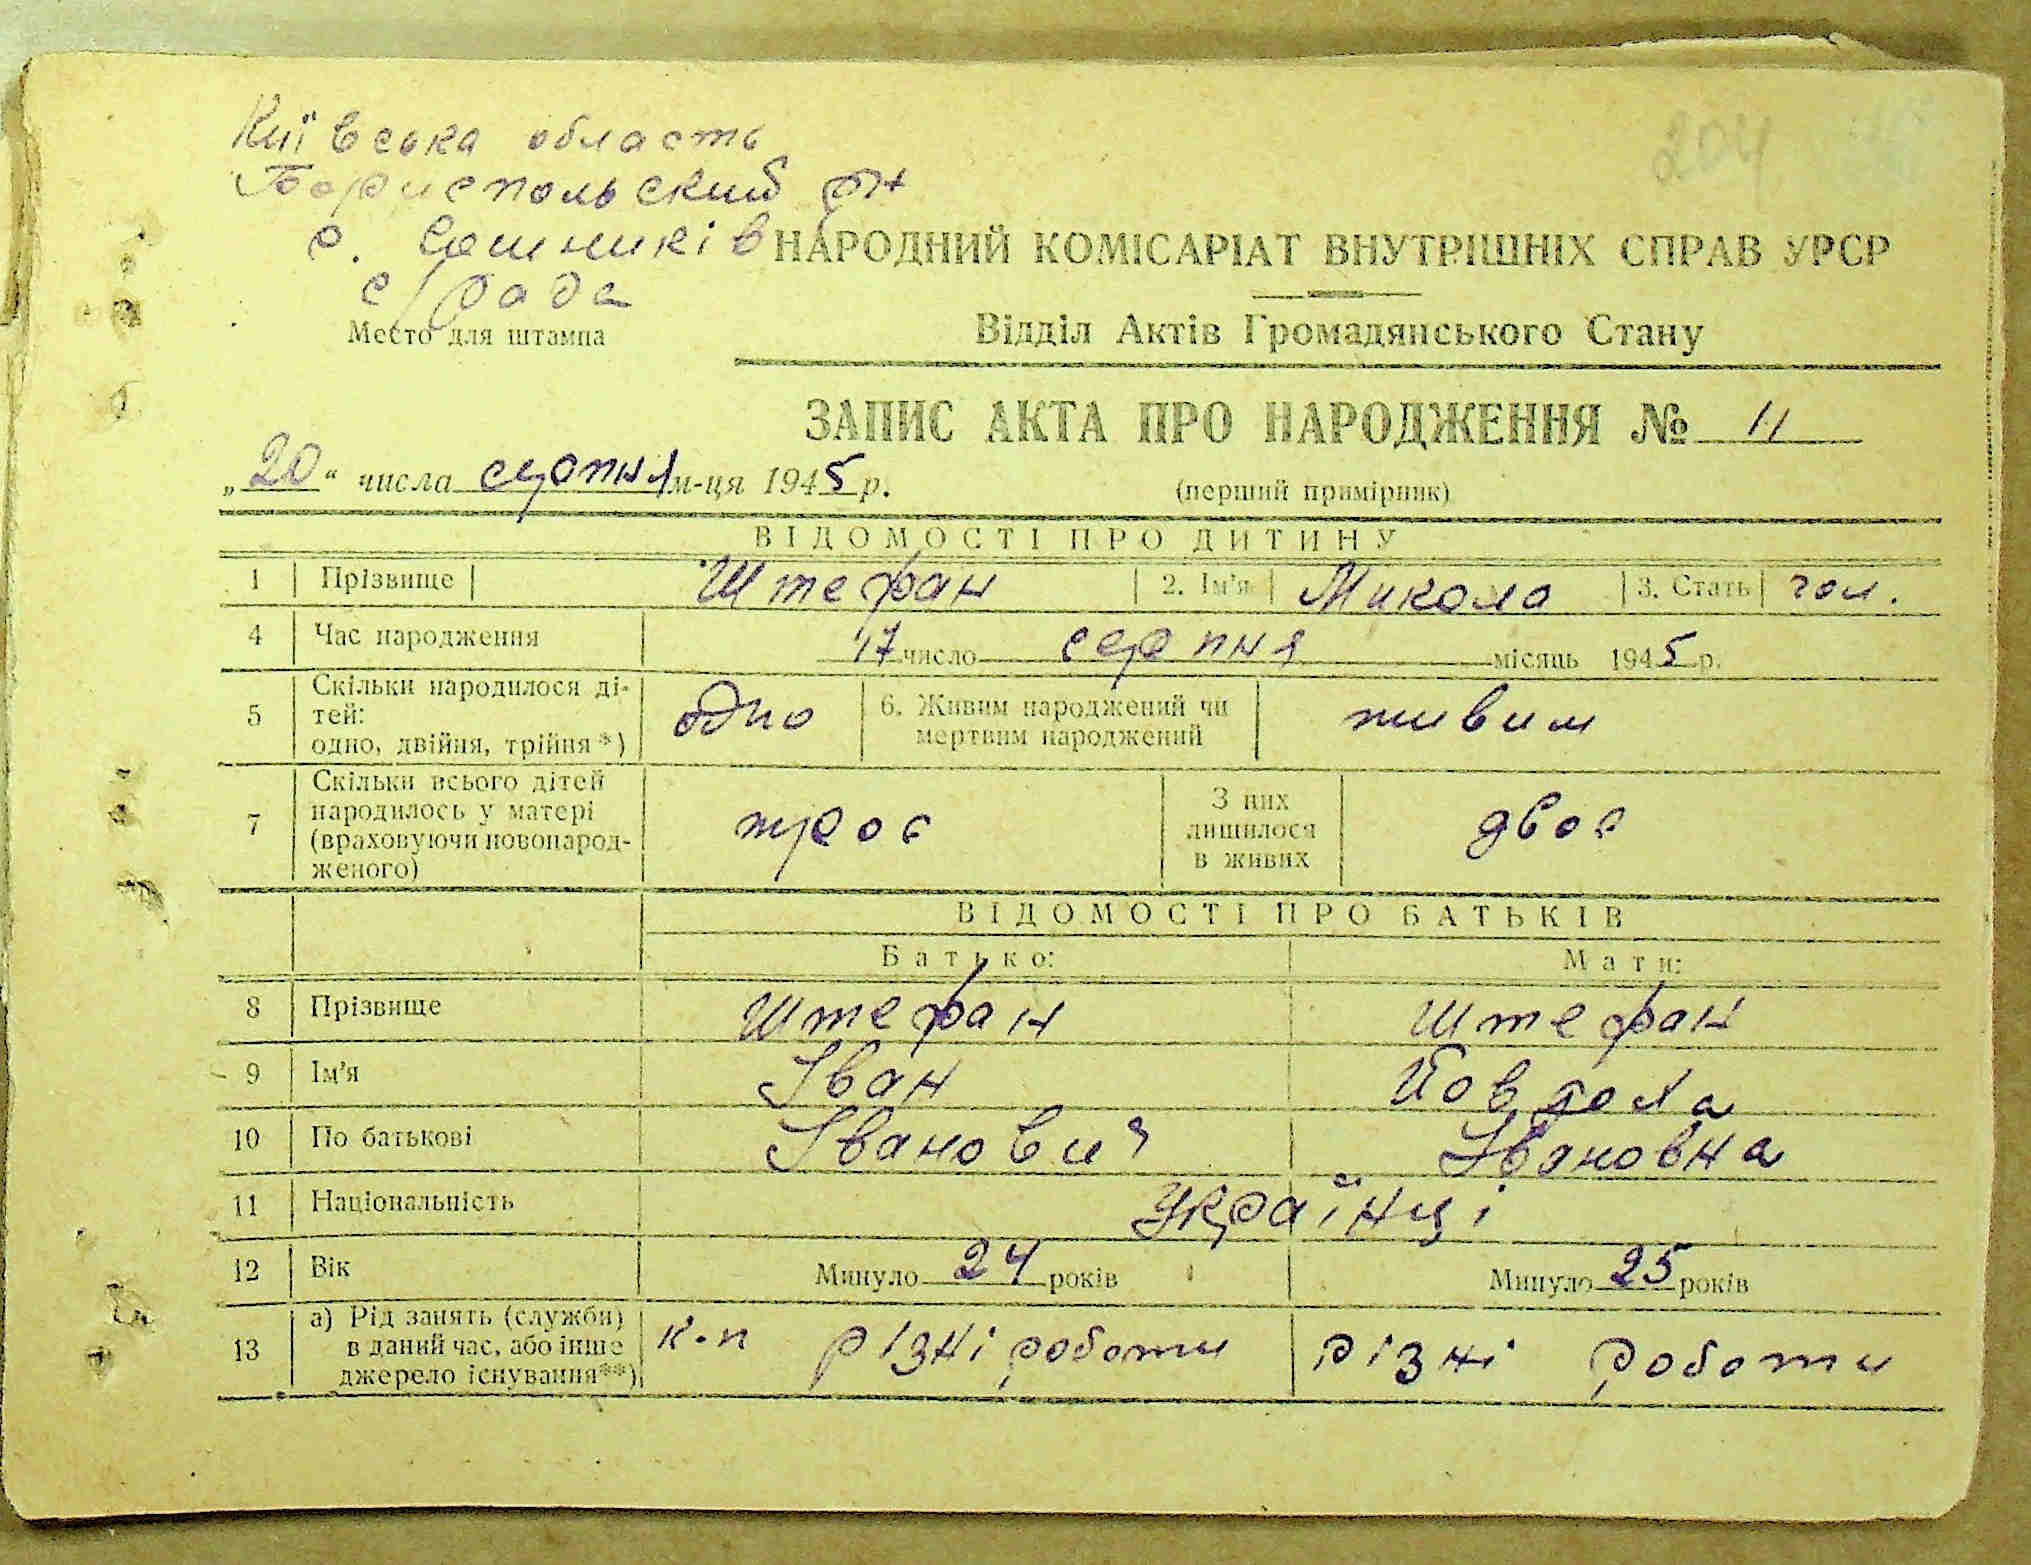 204
Київська область
Бориспольский р-н
с. Сошників
с/рада
Место для штампа
НАРОДНИЙ КОМІСАРІАТ ВНУТРІШНІХ СПРАВ УРСР
Відділ Актів Громадянського Стану
ЗАПИС АКТА ПРО НАРОДЖЕННЯ № 11
„20“ числа серпня м-ця 1945 р. (перший примірник)
ВІДОМОСТІ ПРО ДИТИНУ
1 Прізвище Штефан 2. Ім'я Микола 3. Стать чол.
4 Час народження 17 число серпня місяць 1945 р.
5 Скільки народилося ді-
тей:
одно, двійня, трійня *) одно 6. Живим народжений чи
мертвим народжений живим
7 Скільки всього дітей
народилось у матері
(враховуючи новонарод-
женого) троє З них
лишилося
в живих двоє
ВІДОМОСТІ ПРО БАТЬКІВ
Батько: Мати:
8 Прізвище Штефан Штефан
9 Ім'я Іван
10 По батькові Іванович Івановна
11 Національність Українці
12 Вік Минуло 24 років Минуло 25 років
13 а) Рід занять (служби)
в даний час, або інше
джерело існування**) к-п різні роботи різні роботи